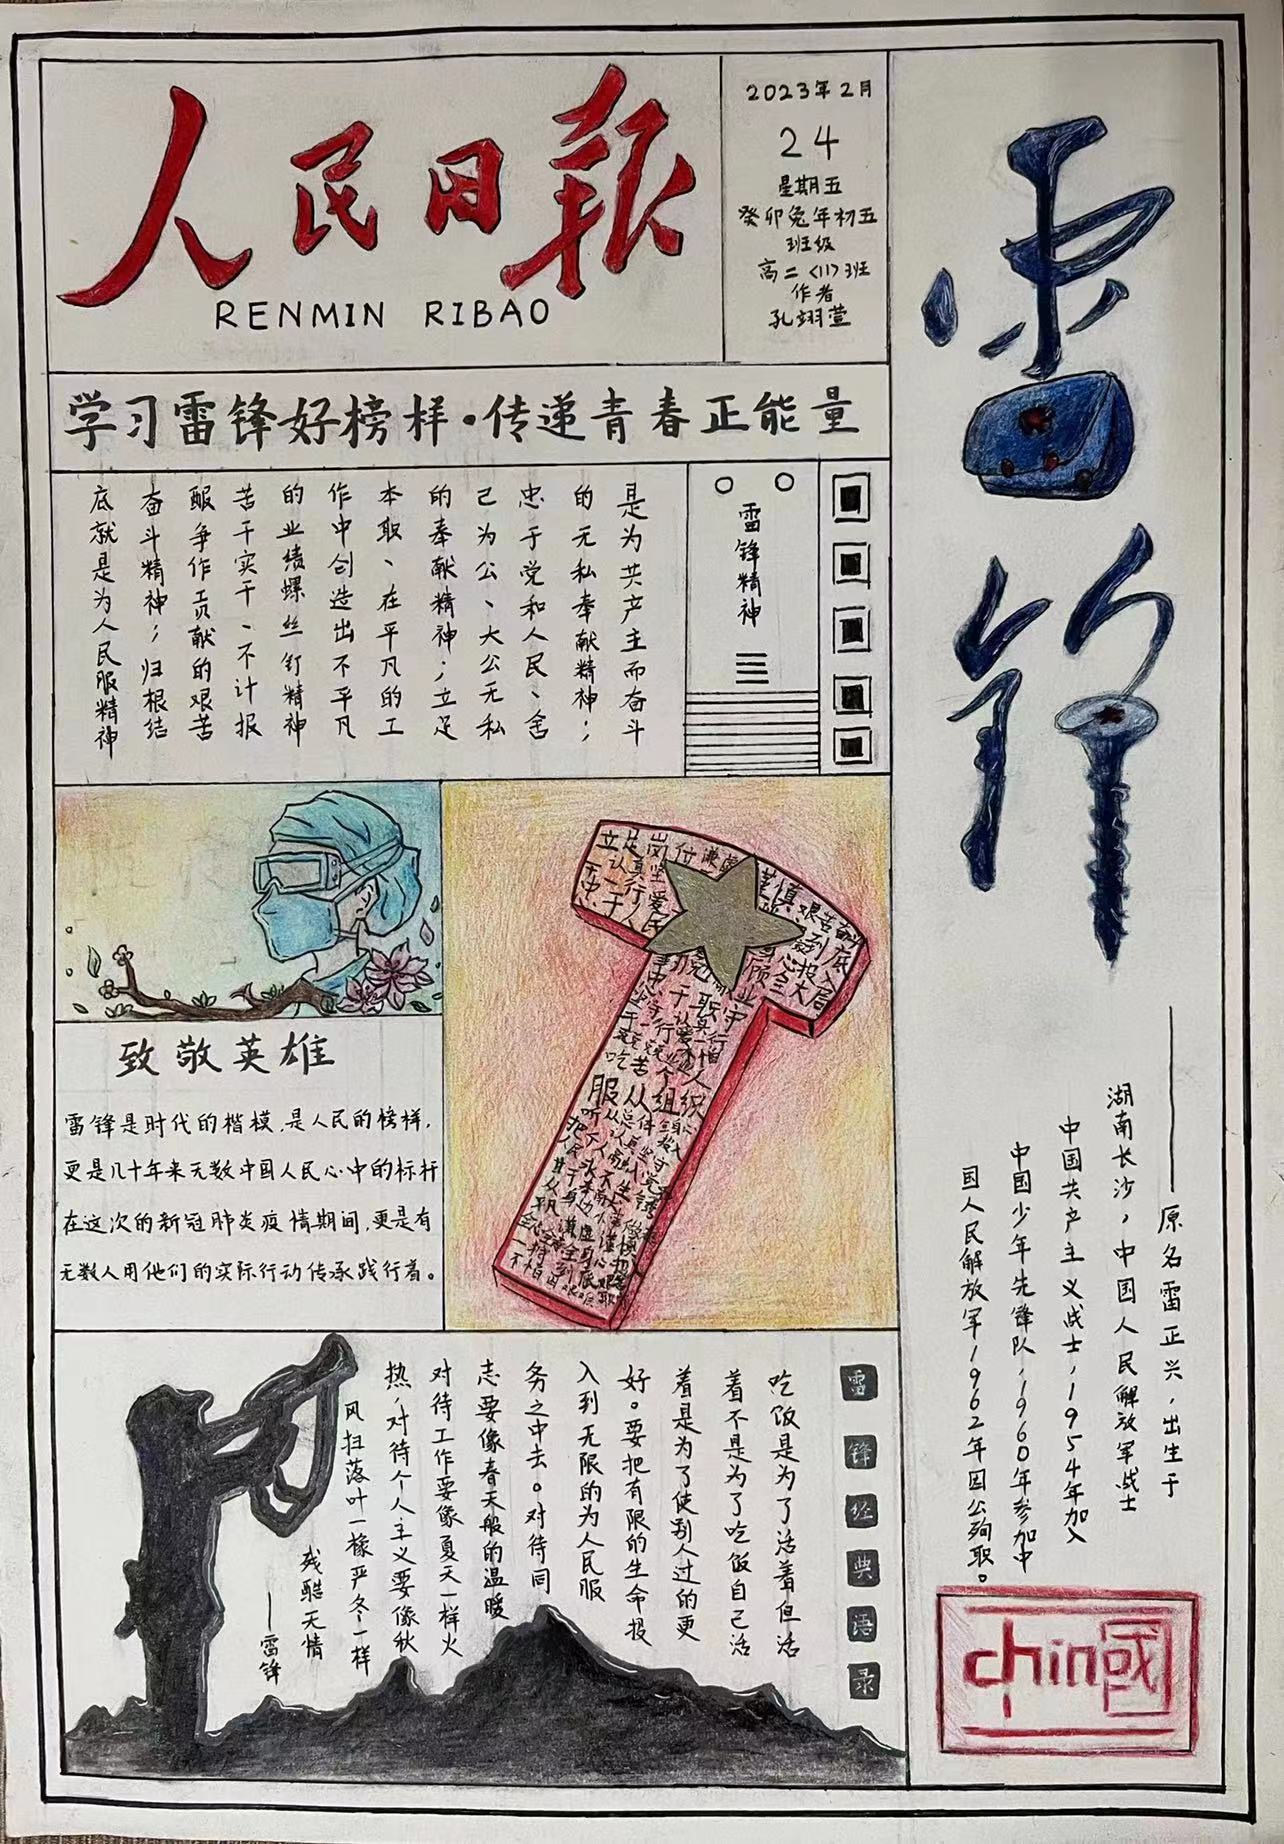 人民日报
RENMIN RIBAO
2023年2月
24
星期五
癸卯兔年初五
班级
高二〈11〉班
作者
孔翊萱
学习雷锋好榜样·传递青春正能量
雷锋精神
三
是为共产主而奋斗
的无私奉献精神；
忠于党和人民、舍
己为公、大公无私
的奉献精神；立足
本职、在平凡的工
作中创造出不平凡
的业绩螺丝钉精神
苦干实干、不计报
酬争作贡献的艰苦
奋斗精神；归根结
底就是为人民服精神
致敬英雄
雷锋是时代的楷模,是人民的榜样,
更是几十年来无数中国人民心中的标杆
在这次的新冠肺炎疫情期间,更是有
无数人用他们的实际行动传承践行着。
立足岗位谦
艰苦奋斗
雷锋经典语录
吃饭是为了活着但活
着不是为了吃饭自己活
着是为了使别人过的更
好。要把有限的生命投
入到无限的为人民服
务之中去。对待同
志要像春天般的温暖
对待工作要像夏天一样火
热,对待个人主义要像秋
风扫落叶一样严冬一样
残酷无情
——雷锋
雷锋
——原名雷正兴，出生于
湖南长沙，中国人民解放军战士
中国共产主义战士，1954年加入
中国少年先锋队，1960年参加中
国人民解放军1962年因公殉职。
chin國